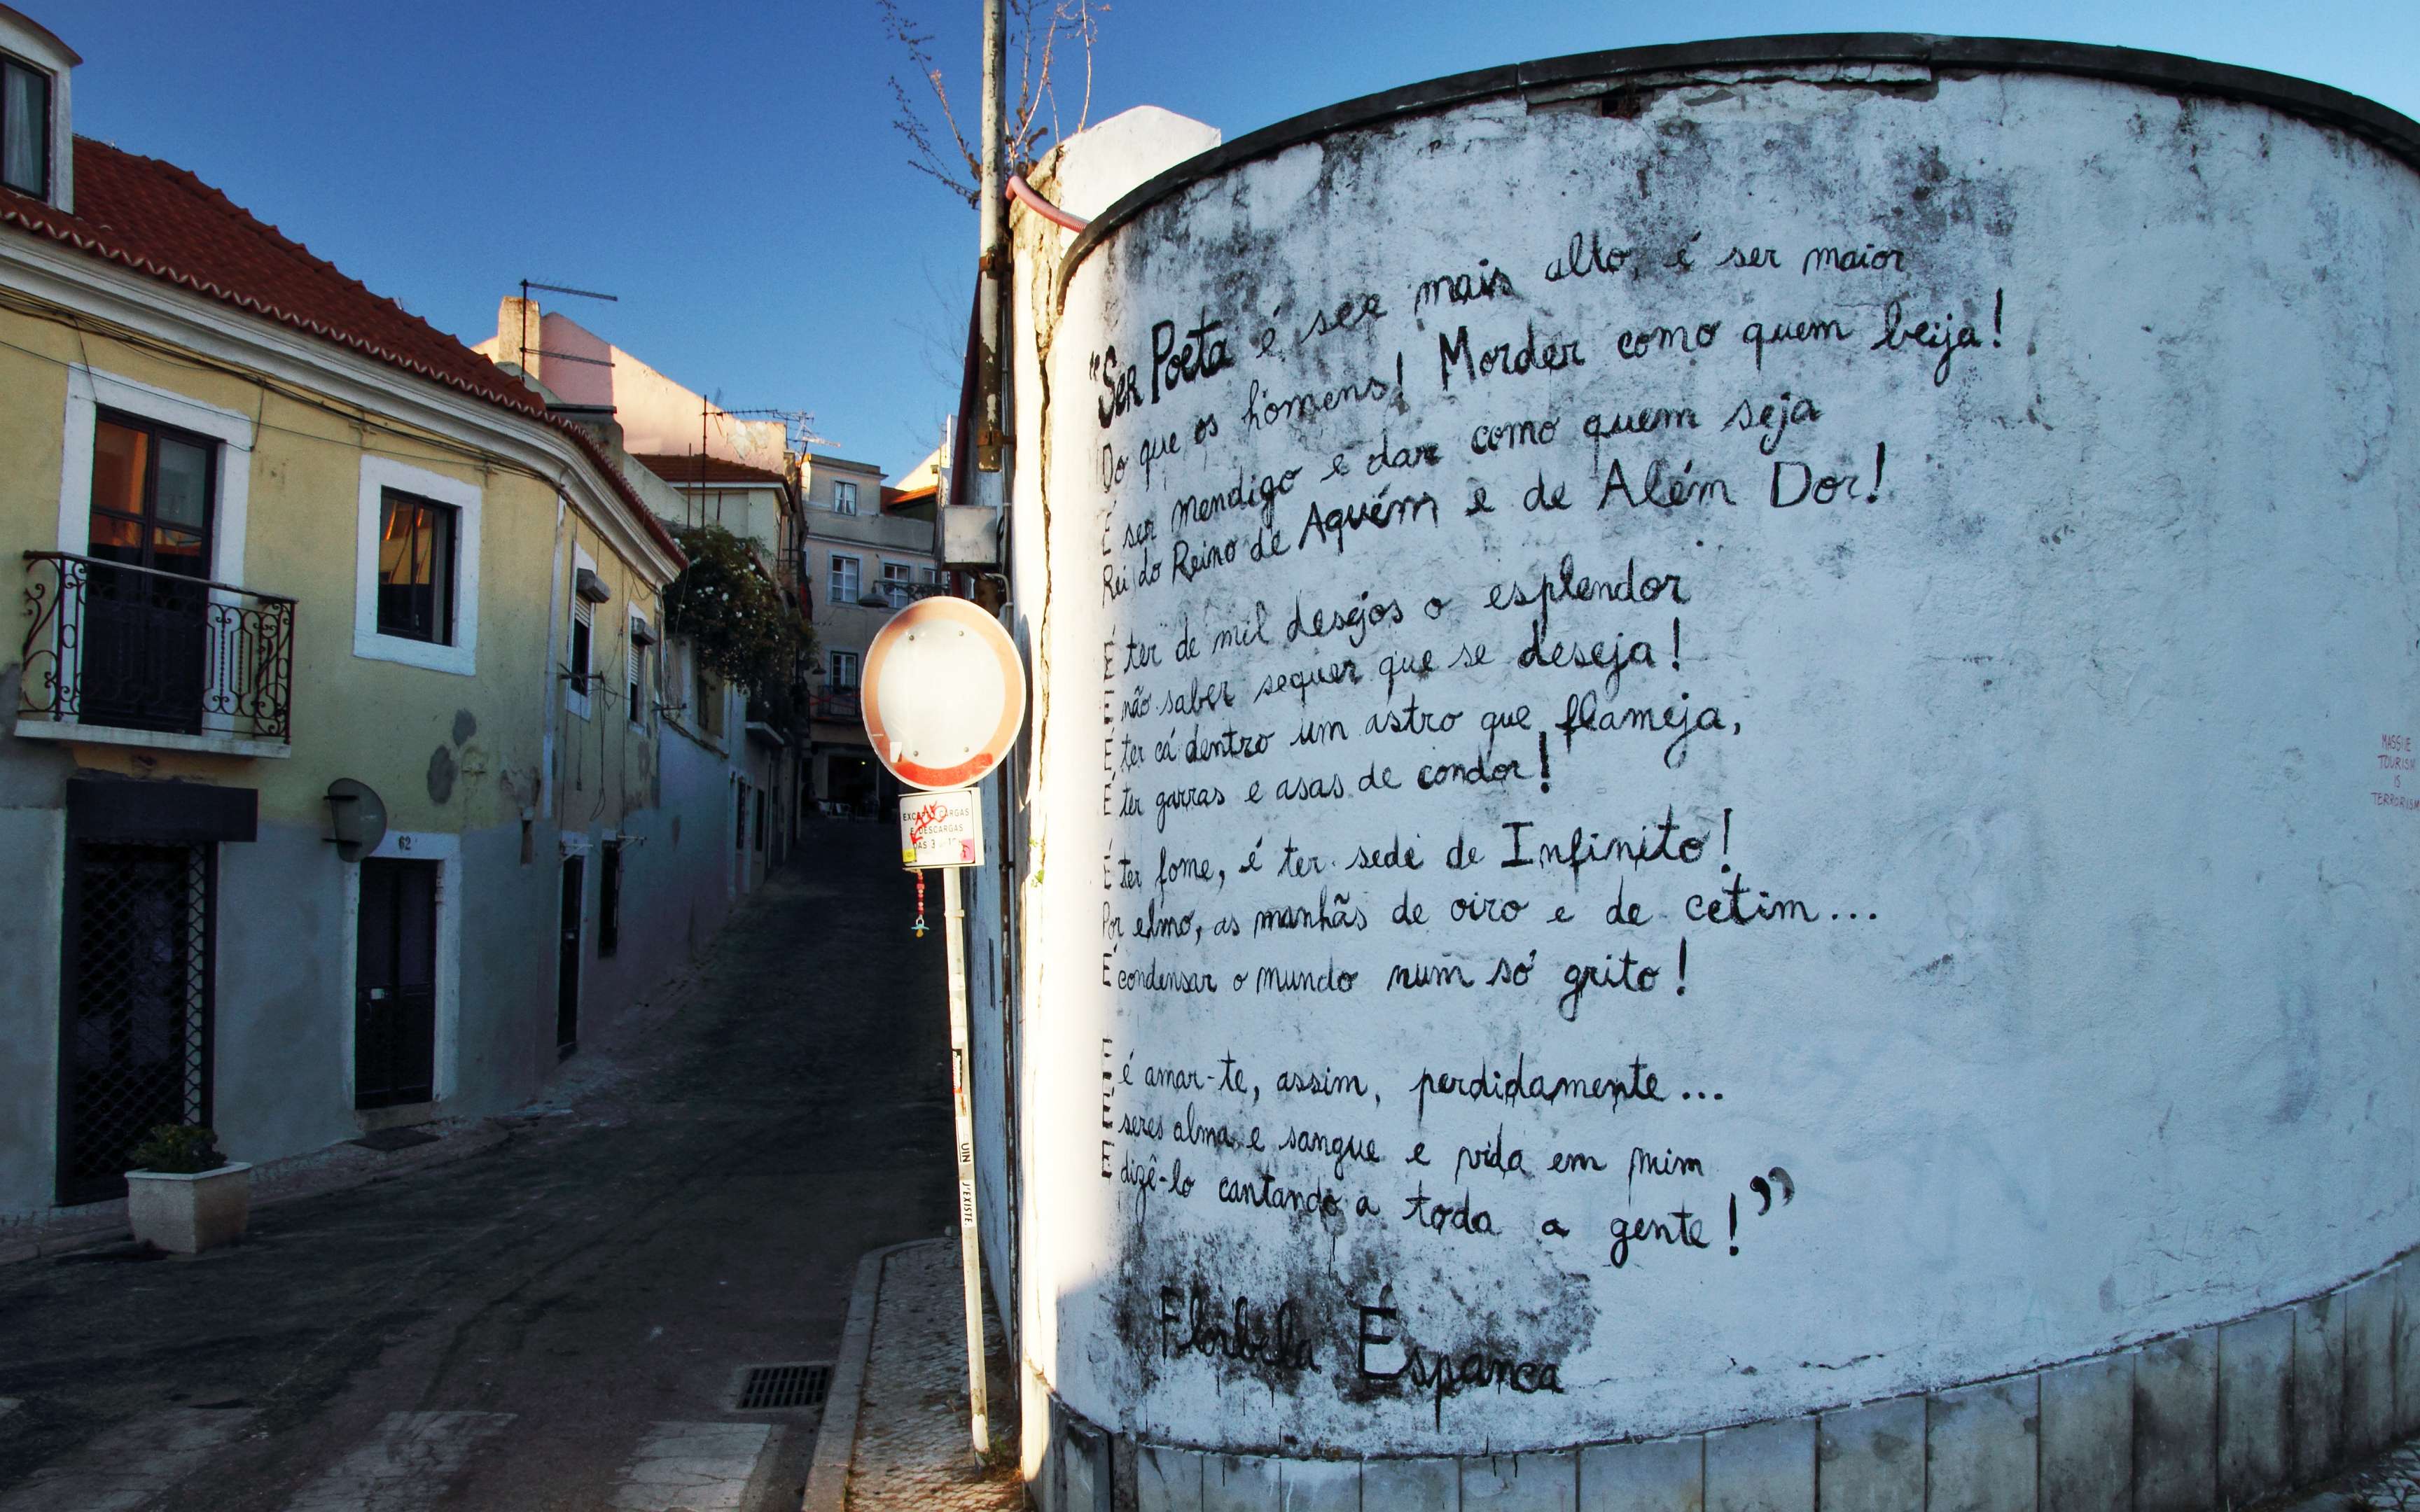 "Ser Poeta é ser mais alto, é ser maior
Do que os homens! Morder como quem beija!
É ser mendigo e dar como quem seja
Rei do Reino de Aquém e de Além Dor!
É ter de mil desejos o esplendor
E não saber sequer que se deseja!
É ter cá dentro um astro que flameja,
É ter garras e asas de condor!
É ter fome, é ter sede de Infinito!
Por elmo, as manhãs de oiro e de cetim...
É condensar o mundo num só grito!
E é amar-te, assim, perdidamente...
É seres alma e sangue e vida em mim
E dizê-lo cantando a toda a gente!"
Florbela Espanca
62
CARGAS
E DESCARGAS
DAS
UIN
J'EXISTE
MASSIVE
TOURISM
IS
TERRORISM